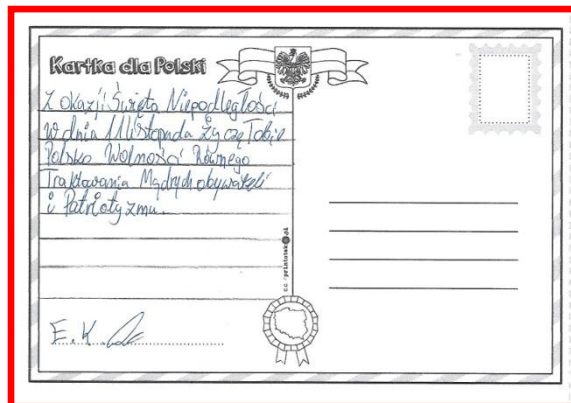 Kartka dla Polski
Z okazji Święta Niepodległości
w dniu 11 listopada Życzę Tobie
Polsko Wolności Równego
Traktowania Mądrych obywateli
i Patriotyzmu.
E.K.